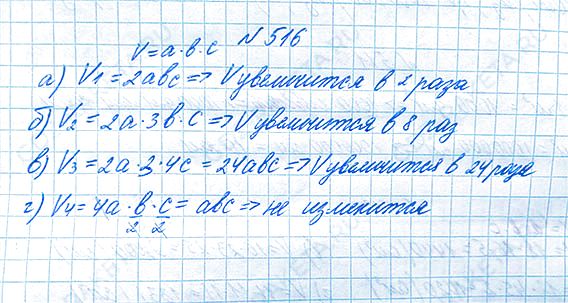 N 516
V = a · b · c
а) V1 = 2abc => V увеличится в 2 раза
б) V2 = 2a · 3b · c => V увеличится в 8 раз
в) V3 = 2a · 3 · 4c = 24abc => V увеличится в 24 раза
г) V4 = 4a · b/2 · c/2 = abc => не изменится